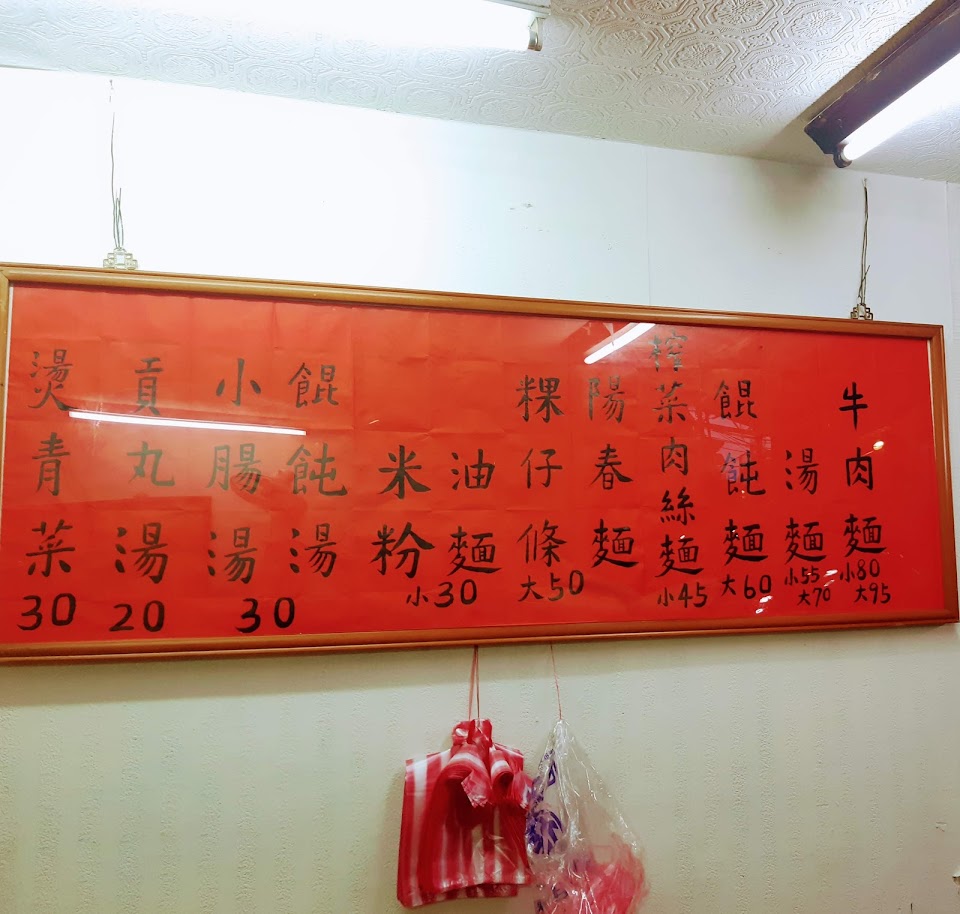 牛肉麵
小80
大95
湯麵
小55
大70
餛飩麵
榨菜肉絲麵
小45
大60
陽春麵
粿仔條
油麵
米粉
小30
大50
餛飩湯
小腸湯
30
貢丸湯
20
燙青菜
30